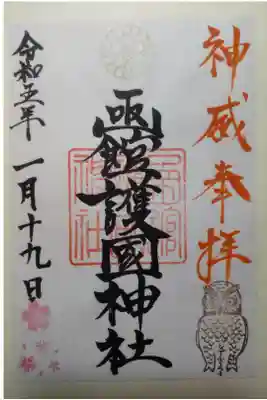 神威奉拝
函館護國神社
令和五年 一月十九日